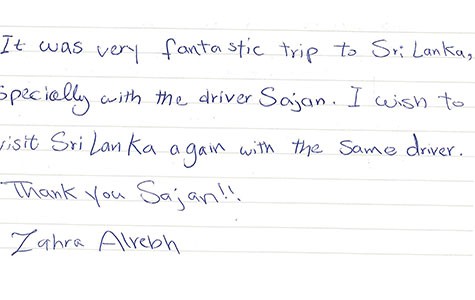 It was very fantastic trip to Sri Lanka,
specially with the driver Sajan. I wish to
visit Sri Lanka again with the same driver.
Thank you Sajan!!
Zahra Alrebh